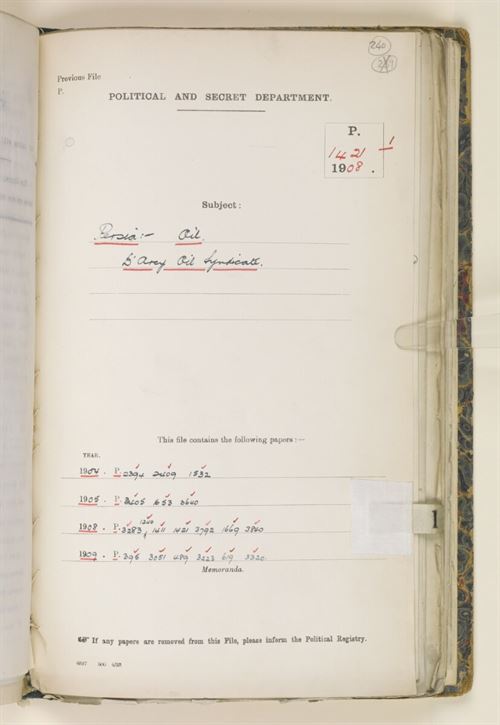 240
Previous File
P.
POLITICAL AND SECRET DEPARTMENT.
P.
1421/1
1908.
Subject:
Persia:- Oil.
D'Arcy Oil Syndicate.
This file contains the following papers:—
YEAR.
1904. P. 2394 2409 1532
1905. P. 2405 1653 3640
1908. P. 3283 1240 1411 1421 3792 1669 3860
1909. P. 395 3051 489 3223 619 3320
Memoranda.
If any papers are removed from this File, please inform the Political Registry.
1